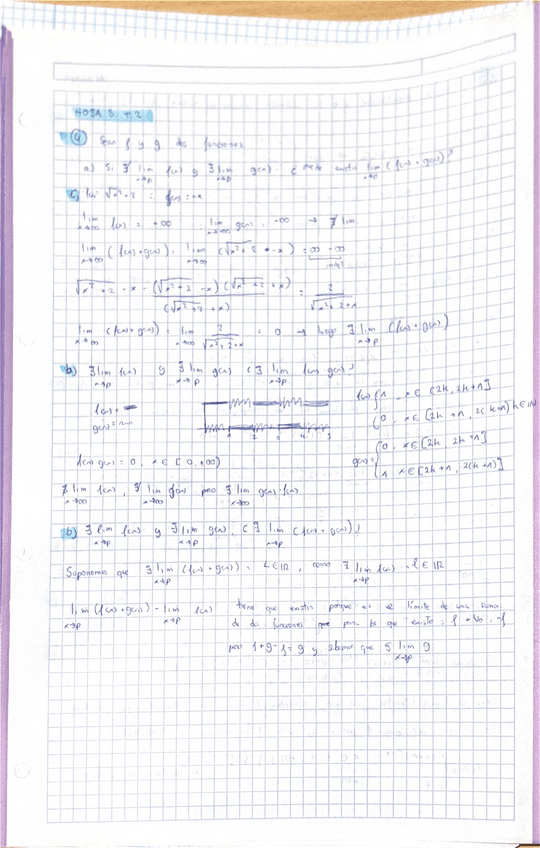 HOJA 3. 
4 Sean f y g dos funciones
a) Si ∄ lim x→p f(x) y ∄ lim x→p g(x) ¿puede existir lim x→p (f(x)+g(x))?
f(x)= √x²+2 ; g(x)=-x
lim x→∞ f(x) = +∞ lim x→∞ g(x) = -∞ → ∄ lim
lim x→∞ (f(x)+g(x)) = lim x→∞ (√x²+2 - x) = ∞ - ∞
√x²+2 - x = (√x²+2 - x)(√x²+2 + x) / (√x²+2 + x) = 2 / √x²+2+x
lim x→∞ (f(x)+g(x)) = lim x→∞ 2 / √x²+2+x = 0 → luego ∃ lim x→p (f(x)+g(x))
b) ∄ lim x→p f(x) y ∄ lim x→p g(x) ¿∃ lim x→p f(x) g(x)?
f(x)=
g(x)=
f(x) { 1, x∈[2k, 2k+1]
0, x∈[2k+1, 2(k+1)) k∈ℕ
g(x)= { 0, x∈[2k, 2k+1]
1, x∈[2k+1, 2(k+1)]
f(x) g(x) = 0, x∈[0,+∞)
∄ lim x→∞ f(x), ∄ lim x→∞ g(x) pero ∃ lim x→∞ g(x)·f(x)
b) ∃ lim x→p f(x) y ∄ lim x→p g(x), ¿∃ lim x→p (f(x)+g(x))?
Suponemos que ∃ lim x→p (f(x)+g(x)) = L∈ℝ, como ∃ lim x→p f(x) = l∈ℝ
lim x→p (f(x)+g(x)) - lim x→p f(x) tiene que existir porque es el límite de una suma
de dos funciones que existe: f+g, -f
pero f+g-f=g y sabemos que ∄ lim x→p g